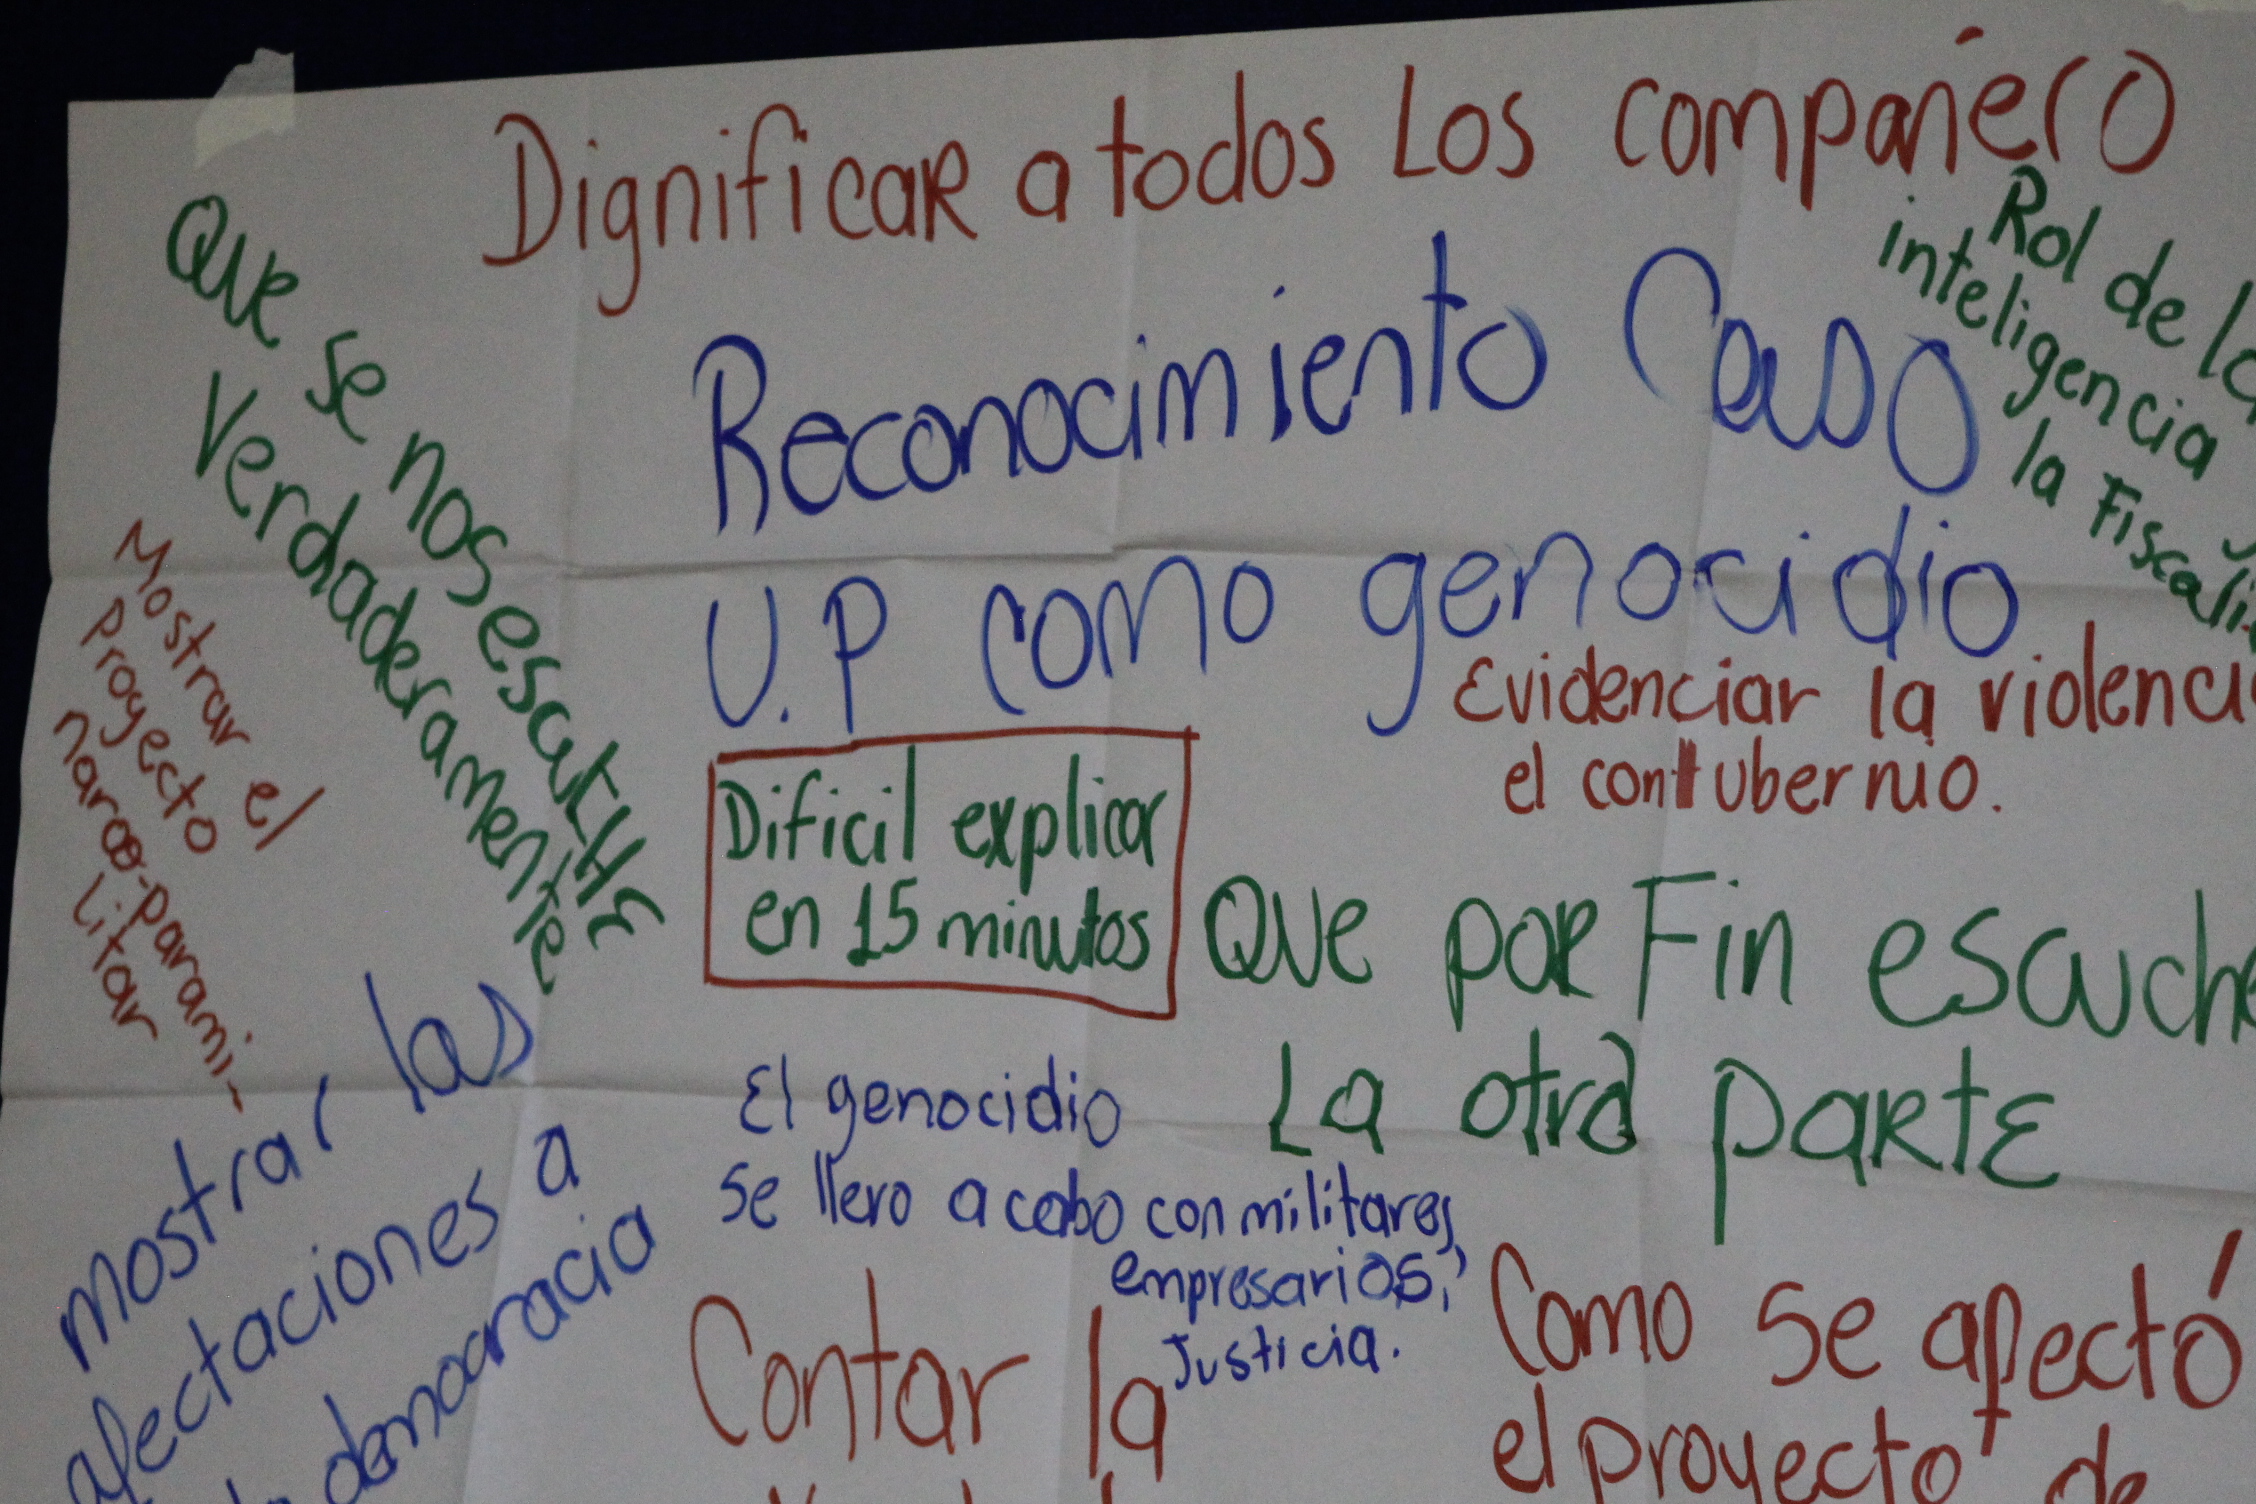 Dignificar a todos Los compañero
Rol de la
inteligencia
la Fiscali
Que se nos escucHE
Verdaderamente
Reconocimiento Caso
U.P como genocidio
Evidenciar la violenci
el contubernio.
Mostrar el
proyecto
narco-parami-
litar
Dificil explicar
en 15 minutos
QUE POR Fin escuche
La otra PARTE
mostrar las
afectaciones a
democracia
El genocidio
se llevo a cabo con militares,
empresarios,
Justicia.
Contar la
Como se afectó
el proyecto de